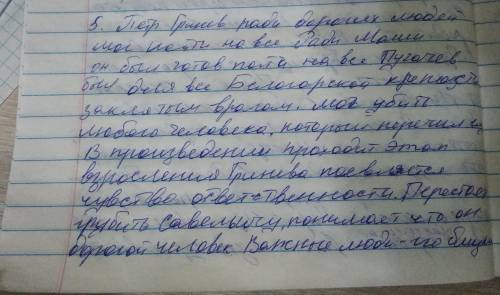 5. Пётр Гринев ради дорогих людей
мог пойти на все Ради Маши
он был готов пойти на все Пугачев
был для все Белогорской крепости
заклятым врагом. мог убить
любого человека, который перечил ему
В произведении проходит этап
взросления Гринева появляется
чувство ответственности. Перестает
грубить Савельичу, понимает что он
дорогой человек Важные люди - его близк